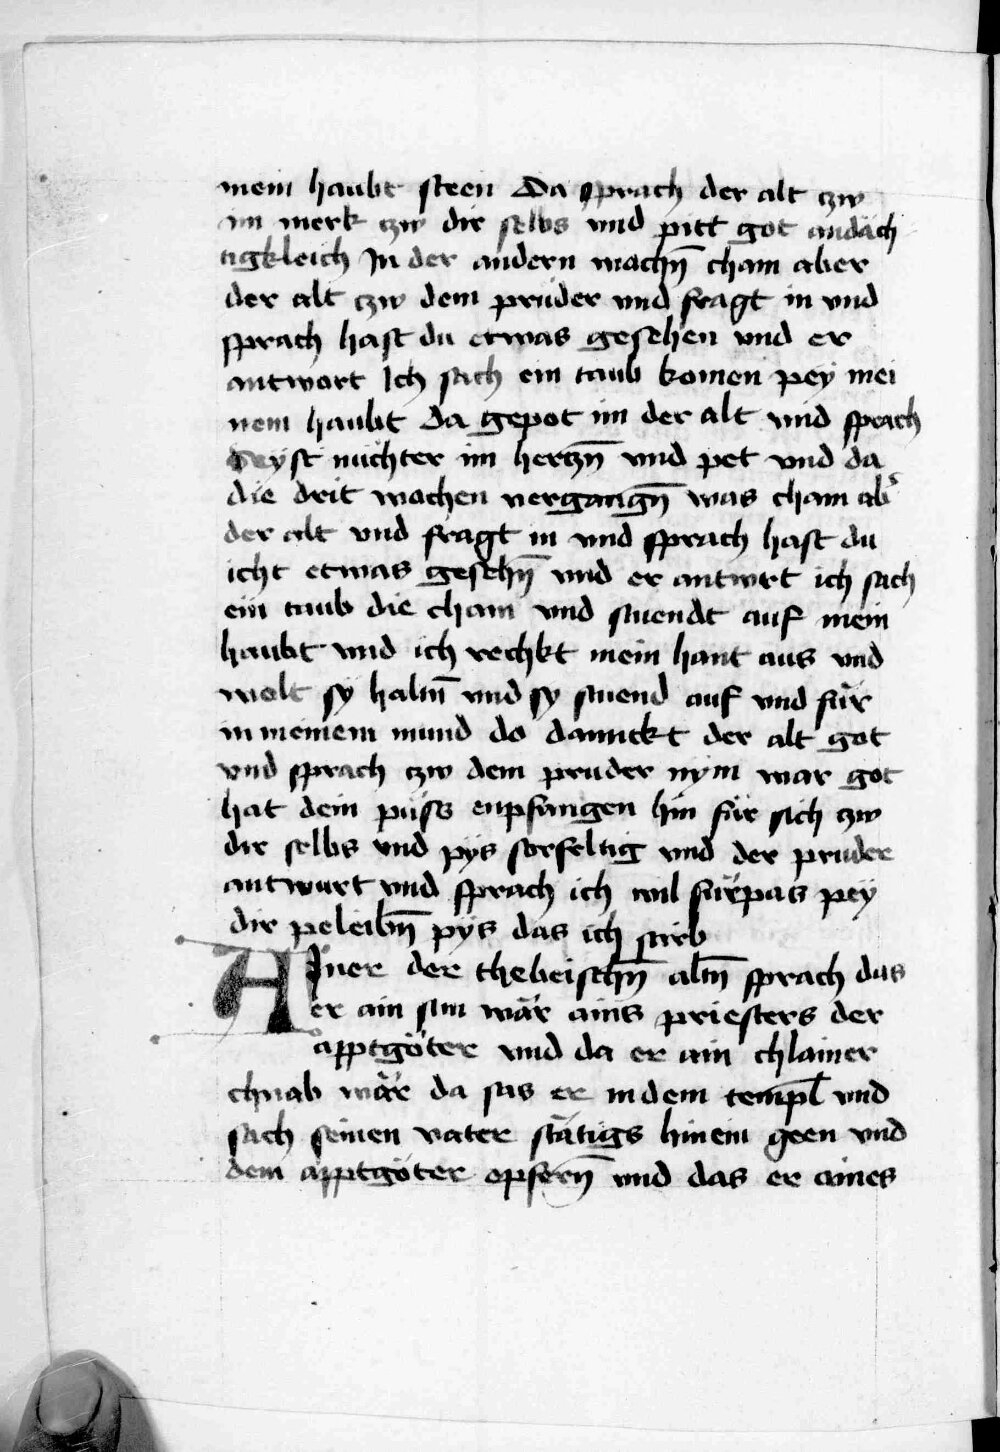 mein haubt steen Da sprach der alt czw
im merk czw dir selbs vnd pitt got andäch
tigkleich In der andern wachn̄ cham aber
der alt czw dem prüder vnd fragt in vnd
sprach hast du etwas gesehen vnd er
antwort Ich sach ein taub komen pey mei
nem haubt Da gepot im der alt vnd sprach
Peyst nüchter im herczn̄ vnd pet vnd da
die drit wachen vergangn̄ was cham ab͛
der alt vnd fragt in vnd sprach hast du
icht etwas gesehn̄ vnd er antwrt ich sach
ein taub die cham vnd stuendt auf mein
haubt vnd ich rechkt mein hant aus vnd
wolt sy haltn̄ vnd sy stuend auf vnd für
in meinem mund do dannckt der alt got
vnd sprach czw dem pruder nym war got
hat dein püss enpfangen hin für sich czw
dir selbs vnd pÿs sorfeltig vnd der pruder
antwurt vnd sprach ich wil fürpas peÿ
dir peleibn̄ pÿs das ich stirb
AIner der thebeischn̄ altn̄ sprach das
er ain sun wär ains priesters der
apptgöter vnd da er ain chlainer
chnab wär da sas er in dem templ̄ vnd
sach seinen vater stätigs hinein geen vnd
dem apptgöter opfern̄ vnd das er aines